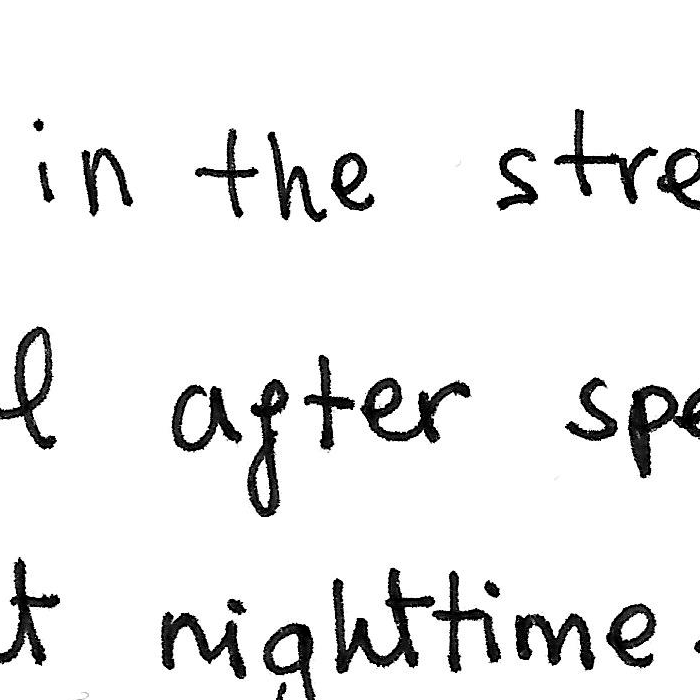 in the stre
l after spe
t nighttime.